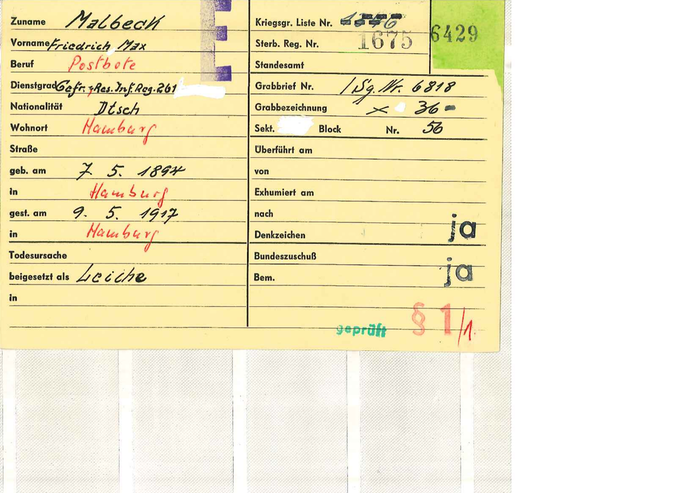 Zuname Malbeck
Vorname Friedrich Max
Beruf Postbote
Dienstgrad Gefr. Res. Inf. Reg. 261
Nationalität Dtsch
Wohnort Hamburg
Straße
geb. am 7. 5. 1894
in Hamburg
gest. am 9. 5. 1917
in Hamburg
Todesursache
beigesetzt als Leiche
in
E
Kriegsgr. Liste Nr.
Sterb. Reg. Nr. 1675
6429
Standesamt
Grabbrief Nr. / Sg. Nr. 6818
Grabbezeichnung x 36 -
Sekt. Block Nr. 56
Überführt am
von
Exhumiert am
nach
Denkzeichen ja
Bundeszuschuß
Bem. ja
geprüft § 1/1